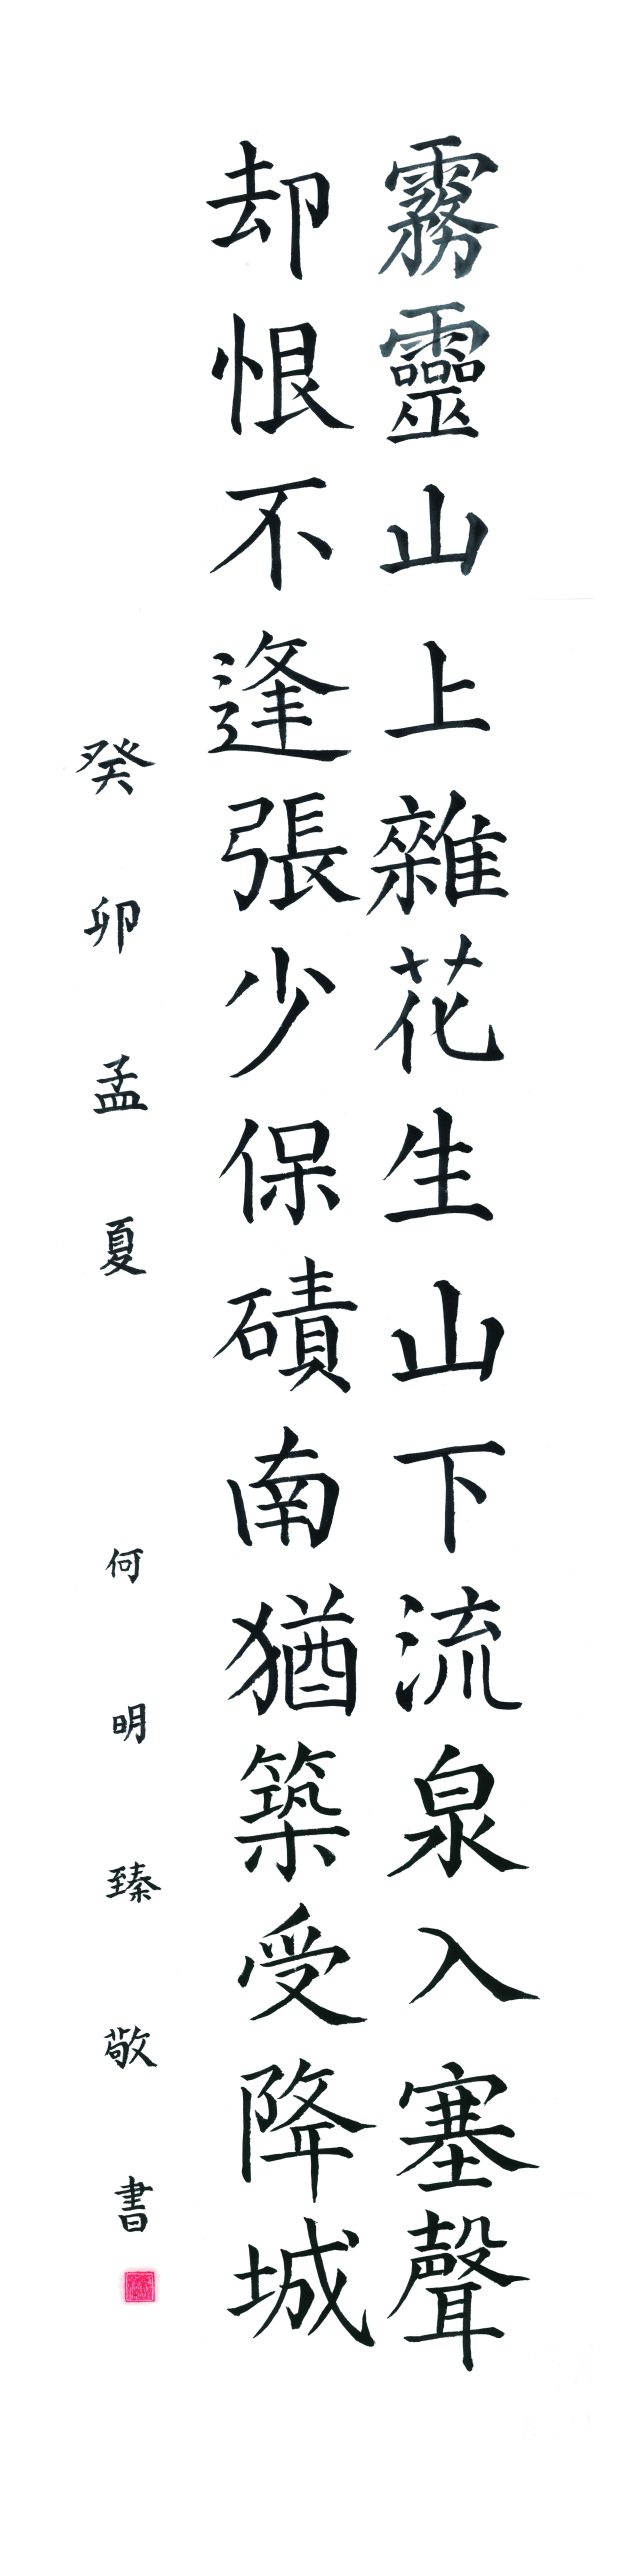 霧靈山上雜花生山下流泉入塞聲
却恨不逢張少保磧南猶築受降城
癸卯孟夏 何明臻敬書